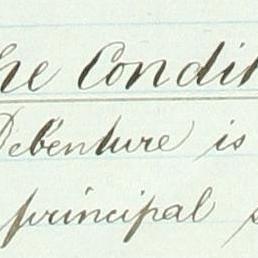 he Condit
Debenture is
principal s